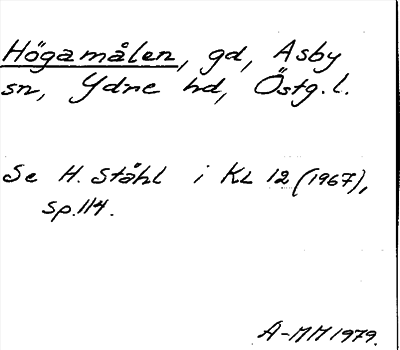 Högamålen, gd, Asby
sn, Ydre hd, Östg.l.
Se H. Ståhl i KL 12 (1967),
sp.114.
A-MM 1979.